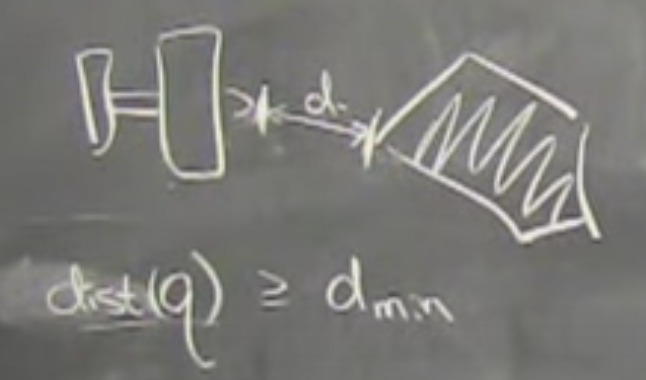 d.
dist(q) ≥ dmin